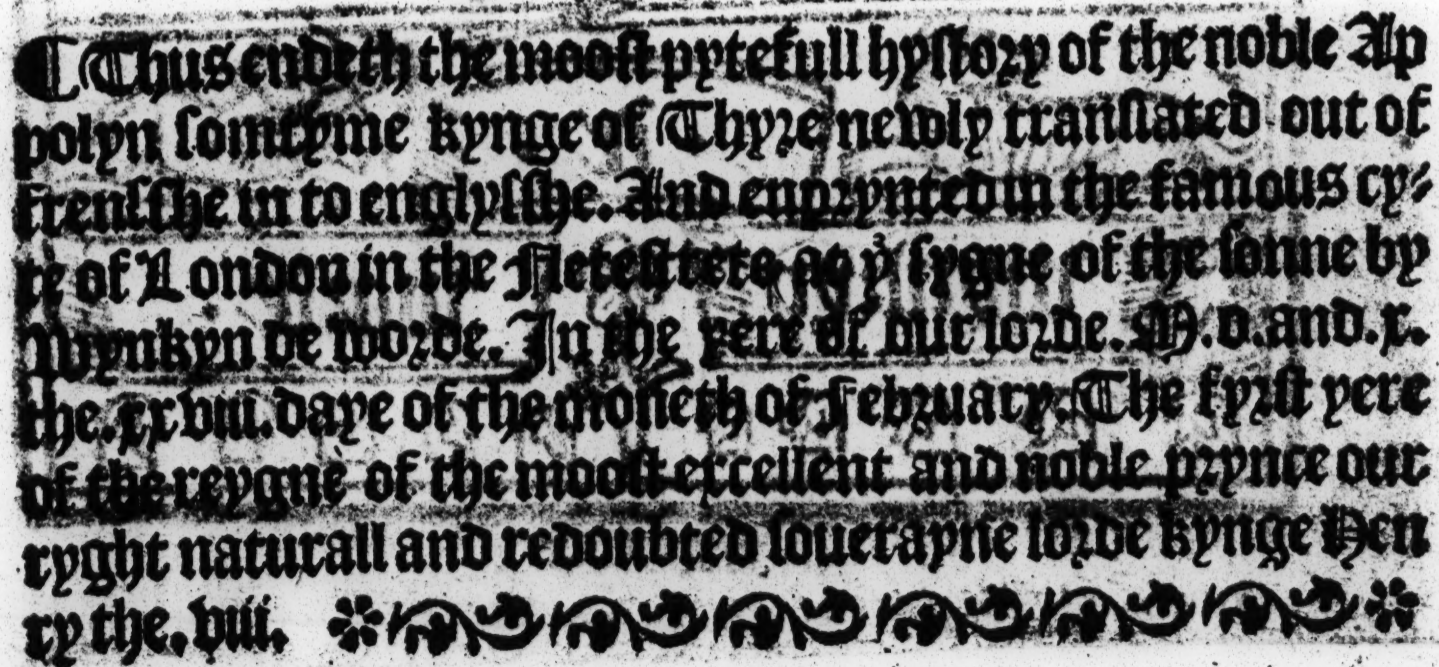 ¶ Thus endeth the mooſt pytefull hyſtory of the noble Ap
polyn ſomtyme kynge of Thyre newly tranſlated out of
frenſſhe in to englyſſhe. And enprynted in the famous cy⸗
te of London in the Fleteſtrete at yͤ ſygne of the ſonne by
Wynkyn de worde. In the yere of our lorde. M.d.and.x.
the.xxviii.daye of the moneth of February. The fyrſt yere
of the reygne of the mooſt excellent and noble prynce our
ryght naturall and redoubted ſouerayne lorde kynge Hen
ry the.viii.